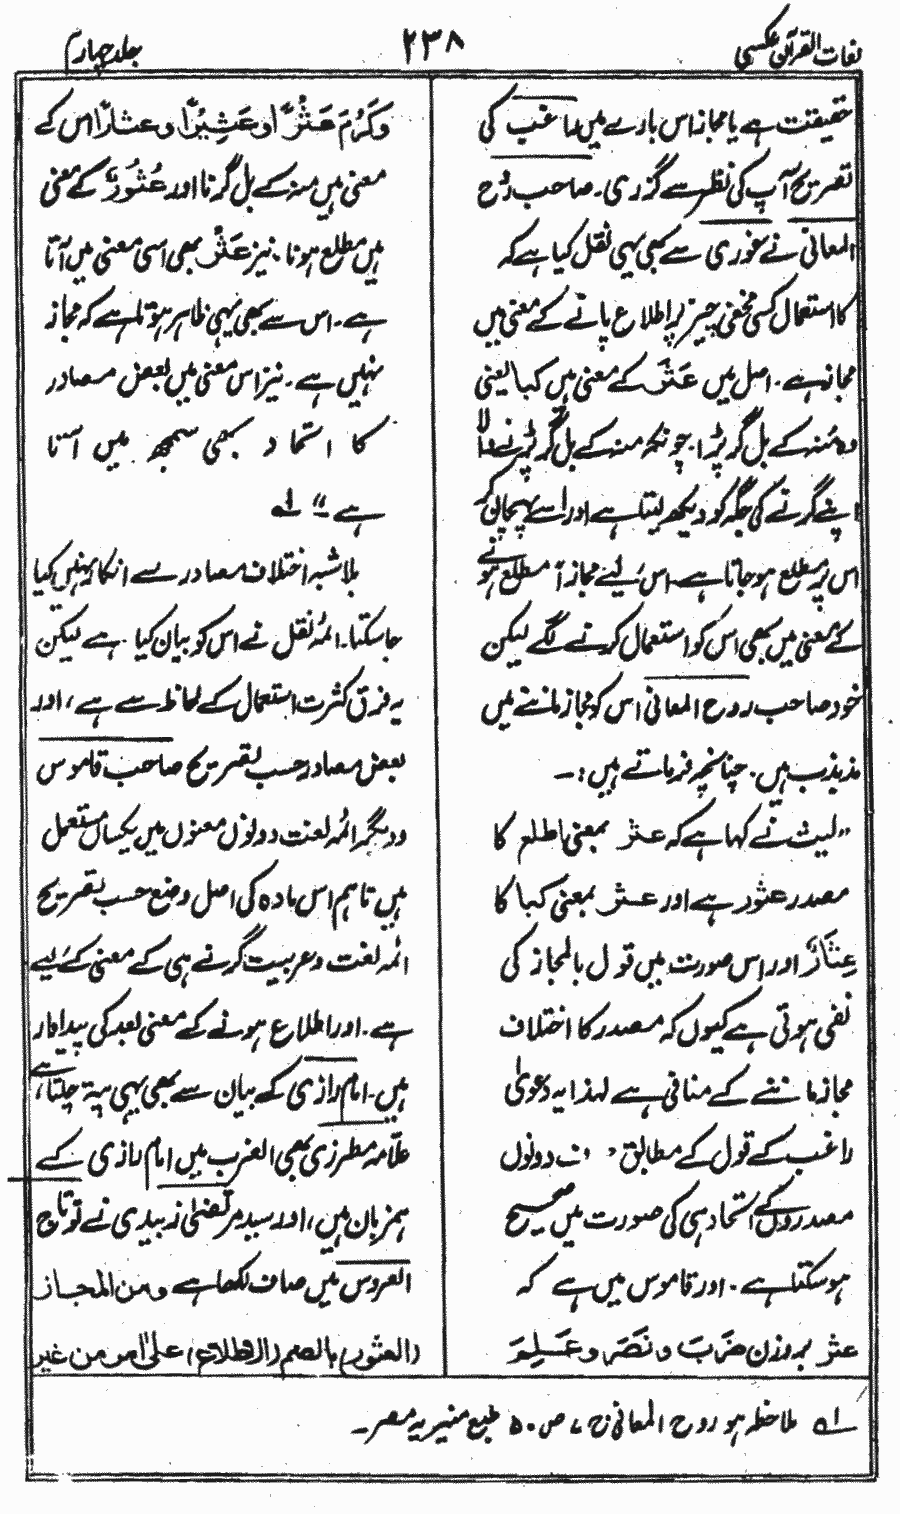 لغات القرآن عکسی
۲۳۸
جلد چہارم
حقیقت ہے یا مجاز اس بارے میں راغب کی
تصریح آپ کی نظر سے گزری۔ صاحب روح
المعانی نے غوری سے بھی یہی نقل کیا ہے کہ
کا استعمال کسی مخفی چیز پر اطلاع پانے کے معنی میں
مجاز ہے۔ اصل میں عَثَرَ کے معنی میں کبا یعنی
وہ منہ کے بل گر پڑا۔ چونکہ منہ کے بل گر پڑنے والا
اپنے گرنے کی جگہ کو دیکھ لیتا ہے اور اسے پہچان کر
اس پر مطلع ہو جاتا ہے۔ اس لیے مجازاً مطلع ہونے
کے معنی میں بھی اس کو استعمال کرنے لگے لیکن
خود صاحب روح المعانی اس کو مجاز ماننے میں
مذبذب ہیں۔ چنانچہ فرماتے ہیں:۔
"لیث نے کہا ہے کہ عثر بمعنی اطلع کا
مصدر عثور ہے اور عثر بمعنی کبا کا
عِثَارٌ اور اس صورت میں قول بالمجاز کی
نفی ہوتی ہے کیوں کہ مصدر کا اختلاف
مجاز ماننے کے منافی ہے لہذا یہ دعویٰ
راغب کے قول کے مطابق ف دونوں
مصدروں کے اتحاد ہی کی صورت میں صحیح
ہو سکتا ہے۔ اور قاموس میں ہے کہ
عثر بروزن ضَرَبَ و نَصَرَ و عَلِمَ
وَكَرُمَ عَثْرًا و عَثِيْرًا و عثارًا اس کے
معنی میں منہ کے بل گرنا اور عُثُورٌ کے معنی
ہیں مطلع ہونا۔ نیز عَثْرٌ بھی اسی معنی میں آتا
ہے۔ اس سے بھی یہی ظاہر ہوتا ہے کہ مجاز
نہیں ہے۔ نیز اس معنی میں بعض مصادر
کا اتحاد بھی سمجھ میں آتا
ہے" لہ
بلاشبہ اختلاف مصادر سے انکار نہیں کیا
جا سکتا۔ ائمہ نقل نے اس کو بیان کیا ہے۔ لیکن
یہ فرق کثرت استعمال کے لحاظ سے ہے، اور
بعض مصادر حسب تصریح صاحب قاموس
و دیگر ائمہ لغت دونوں معنوں میں یکساں مستعمل
ہیں تاہم اس مادہ کی اصل وضع حسب تصریح
ائمہ لغت و عربیت گرنے ہی کے معنی کے لیے
ہے۔ اور اطلاع ہونے کے معنی بعد کی پیداوار
ہیں۔ امام رازی کے بیان سے بھی یہی پتہ چلتا ہے،
علامہ مطرزی بھی المغرب میں امام رازی کے
ہمزبان ہیں، اور سید مرتضیٰ زبیدی نے تو تاج
العروس میں صاف لکھا ہے ومن المجاز
(العثور) بالضم (الاطلاع) علی امر من غیر
لہ ملاحظہ ہو روح المعانی ج ۷، ص ۵۰ طبع منیریہ مصر۔